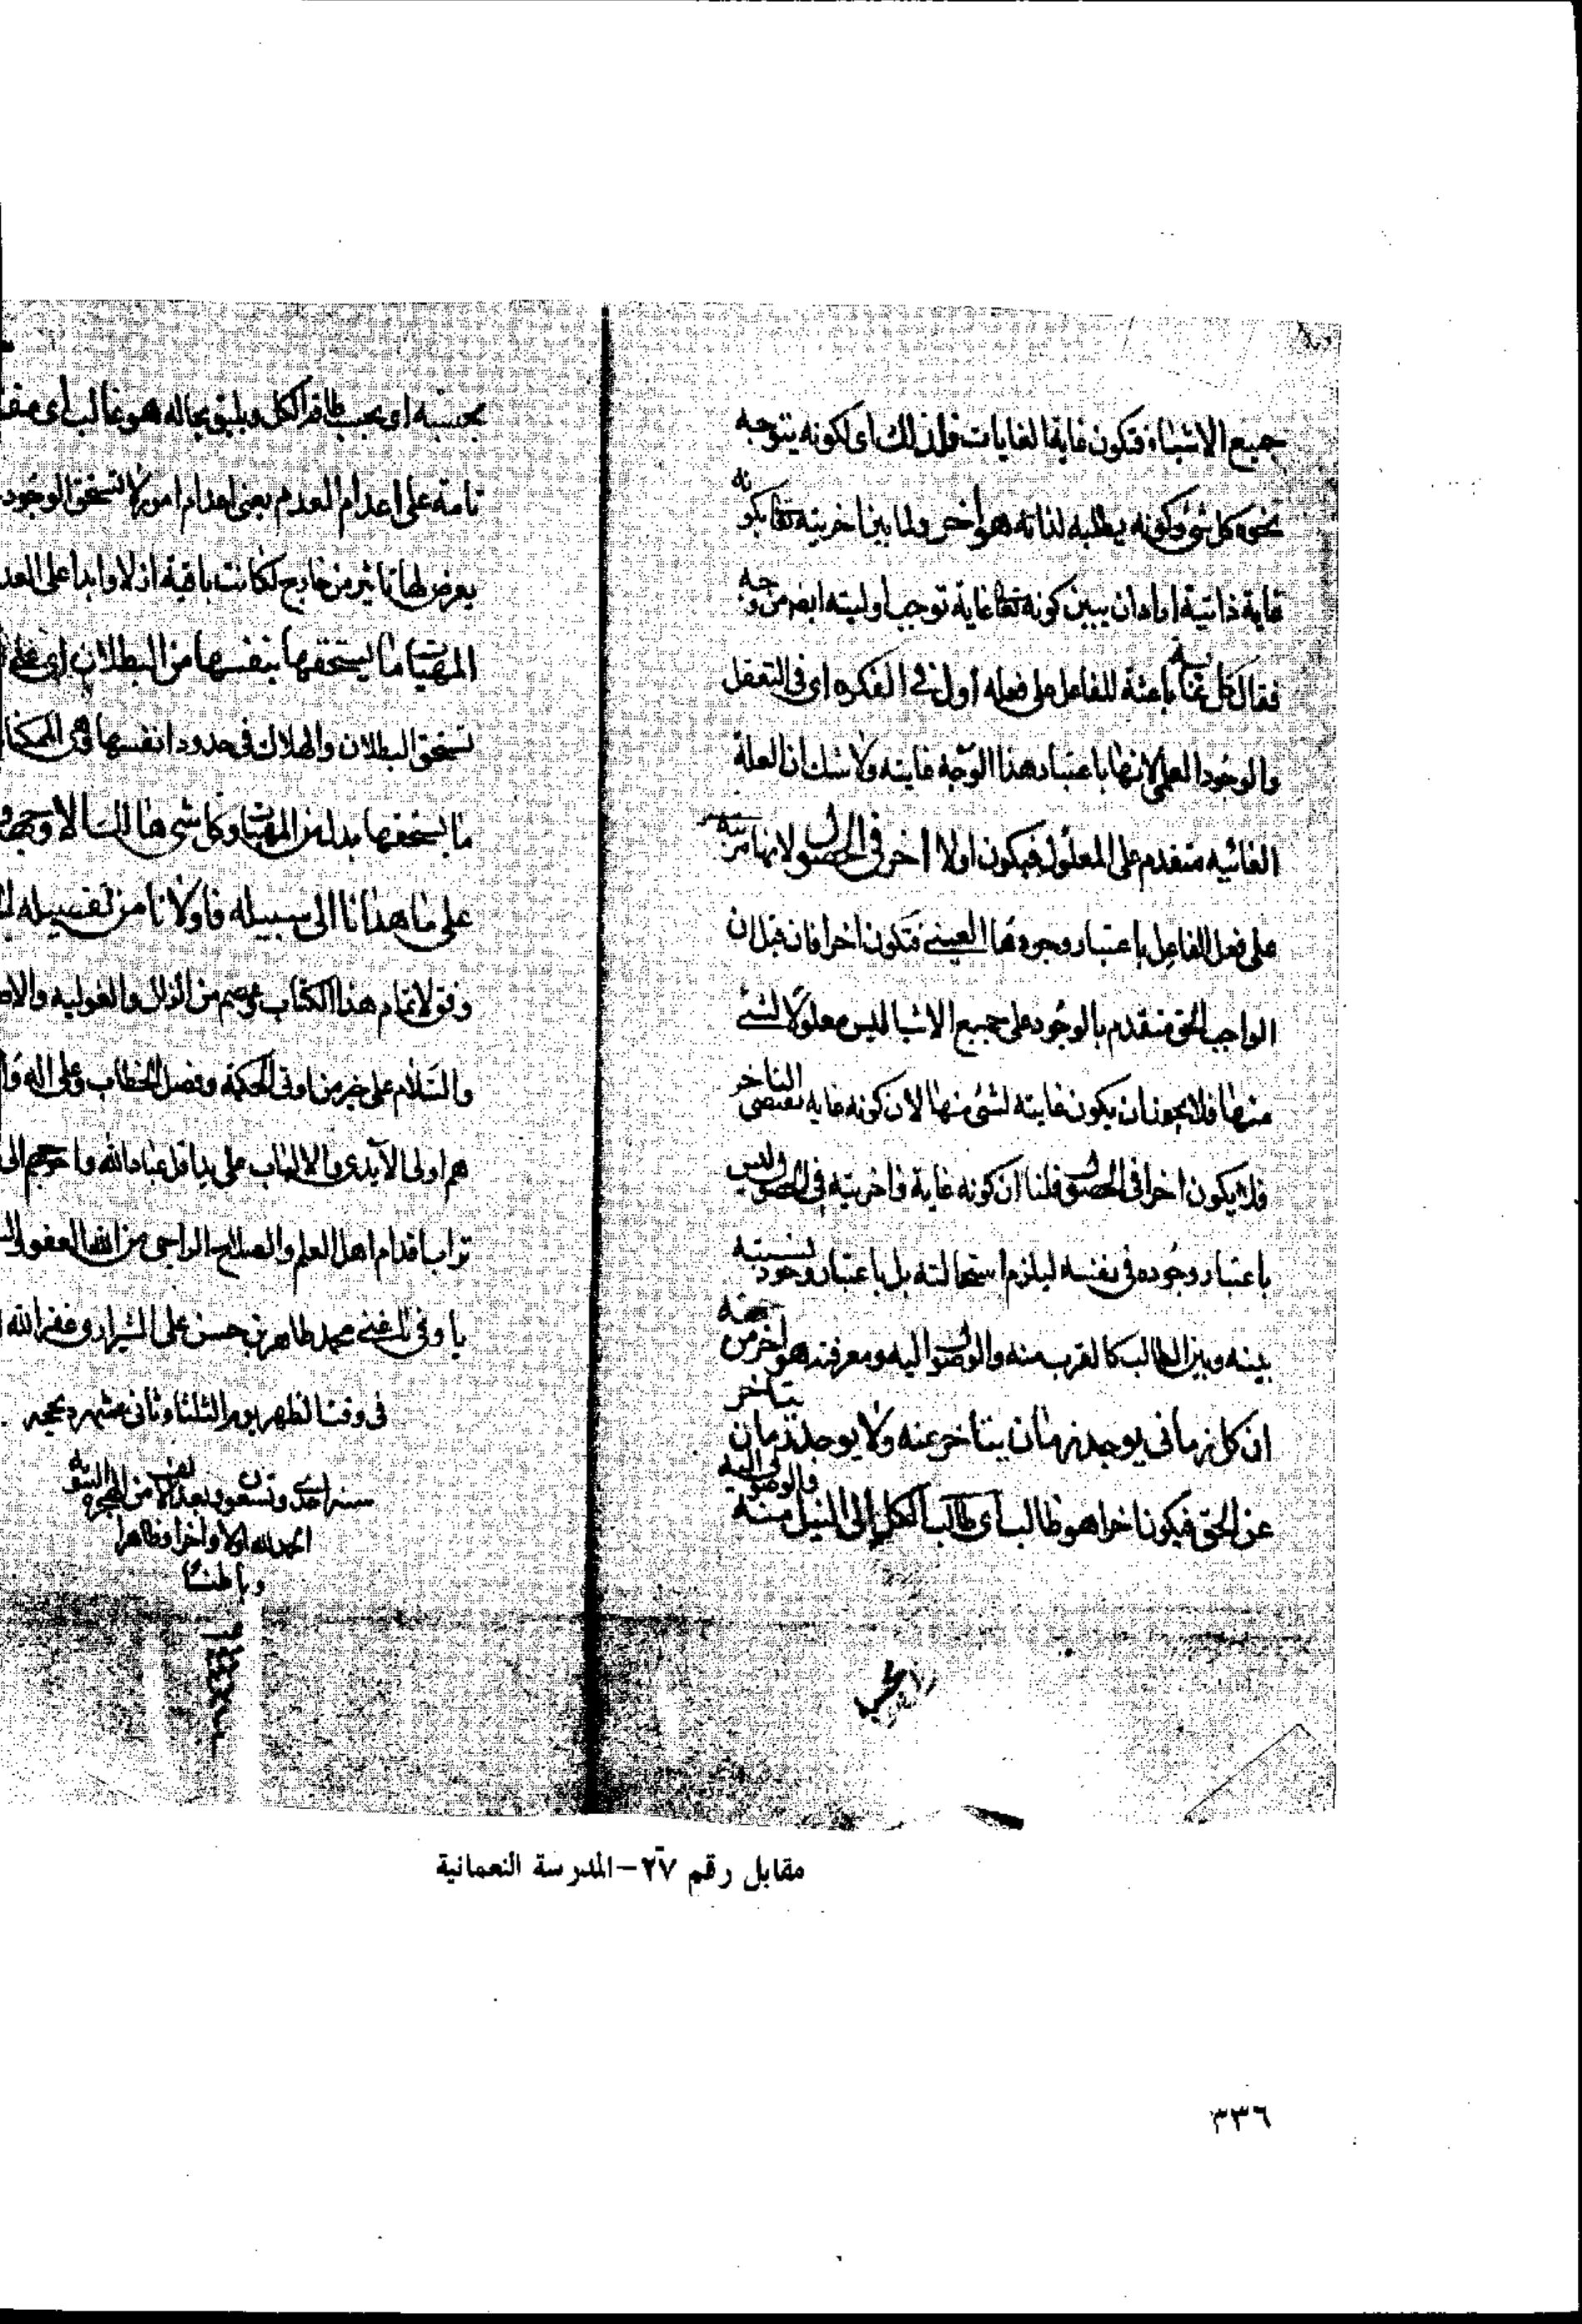 جميع الاشياء فتكون غاية الغايات فلذلك اى لكونه يتوجه
نحوه كل شئ وكونه يطلبه لذاته هو اخر ولما بين اخريته تعالى بكونه
غاية ذاتية اراد ان يبين كونه تعالى غاية توجب اوليته ايضا من وجه
فقال كل غاية باعثة للفاعل على فعله اول فى الفكره اى فى التعقل
والوجود العلمى لانها باعتبار هذا الوجه غايته ولا شك ان العلة
الغائيه متقدم على المعلول فيكون اولا اخر فى الحصول لانها مترتبة
على فعل الفاعل باعتبار وجودها العينى فتكون اخرا فان قيل ان
الواجب الحق متقدم بالوجود على جميع الاشيا ليس معلولا لشئ
منها فلا يجوز ان يكون غايته لشئ منها لان كونه غايه يقتضى التاخر
فلا يكون اخرا فى الحصول قلنا ان كونه غاية واخريته فى الحصول ليس
باعتبار وجوده فى نفسه ليلزم استحالته بل باعتبار وجود نسبته
بينه وبين الطالب كالقرب منه والوصول اليه ومعرفته هو اخر من جهة
ان كل زمانى يوجد زمان يتاخر عنه ولا يوجد زمان يتاخر
عن الحق فيكون اخرا هو طالب اى طالب الكل الى النيل منه والوصول اليه
تامة على اعدام العدم يعنى اعدام امور لا تستحق الوجود
يعرض لها تاثير من خارج لكانت باقية ازلا وابدا على العد
المهيات ما يستحقها بنفسها من البطلان اى على
تستحق البطلان والهلاك فى حدود انفسها وهى الممكنا
ما يستحقها بدله من المهيات وكل شئ هالك الا وجهه
على ما هدانا الى سبيله واولانا من تفضيله
وفق لاتمام هذا الكتاب من الزلل
والسلام على خير من اوتى الحكمة وفصل الخطاب وعلى اله
هم اولى الايدى والالباب على يد اقل عباد الله واحوجهم الى
تراب اقدام اهل العلم والصلاح الراجى من الله العفو
محمد طاهر بن حسن على الشيرازى غفر الله
فى وقت الظهر يوم الثلثاء ثانى عشر
سنه احدى وتسعون بعد الالف من الهجرة النبويه
الحمد لله اولا واخرا وظاهرا
وباطنا
مقابل رقم ٢٧ – المدرسة النعمانية
٣٣٦